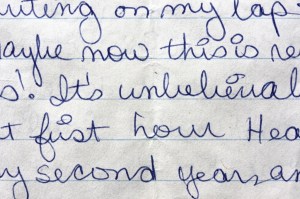 uting on my lap
maybe now this is re
s! It's unbelieval
t first hour Hea
y second years, an